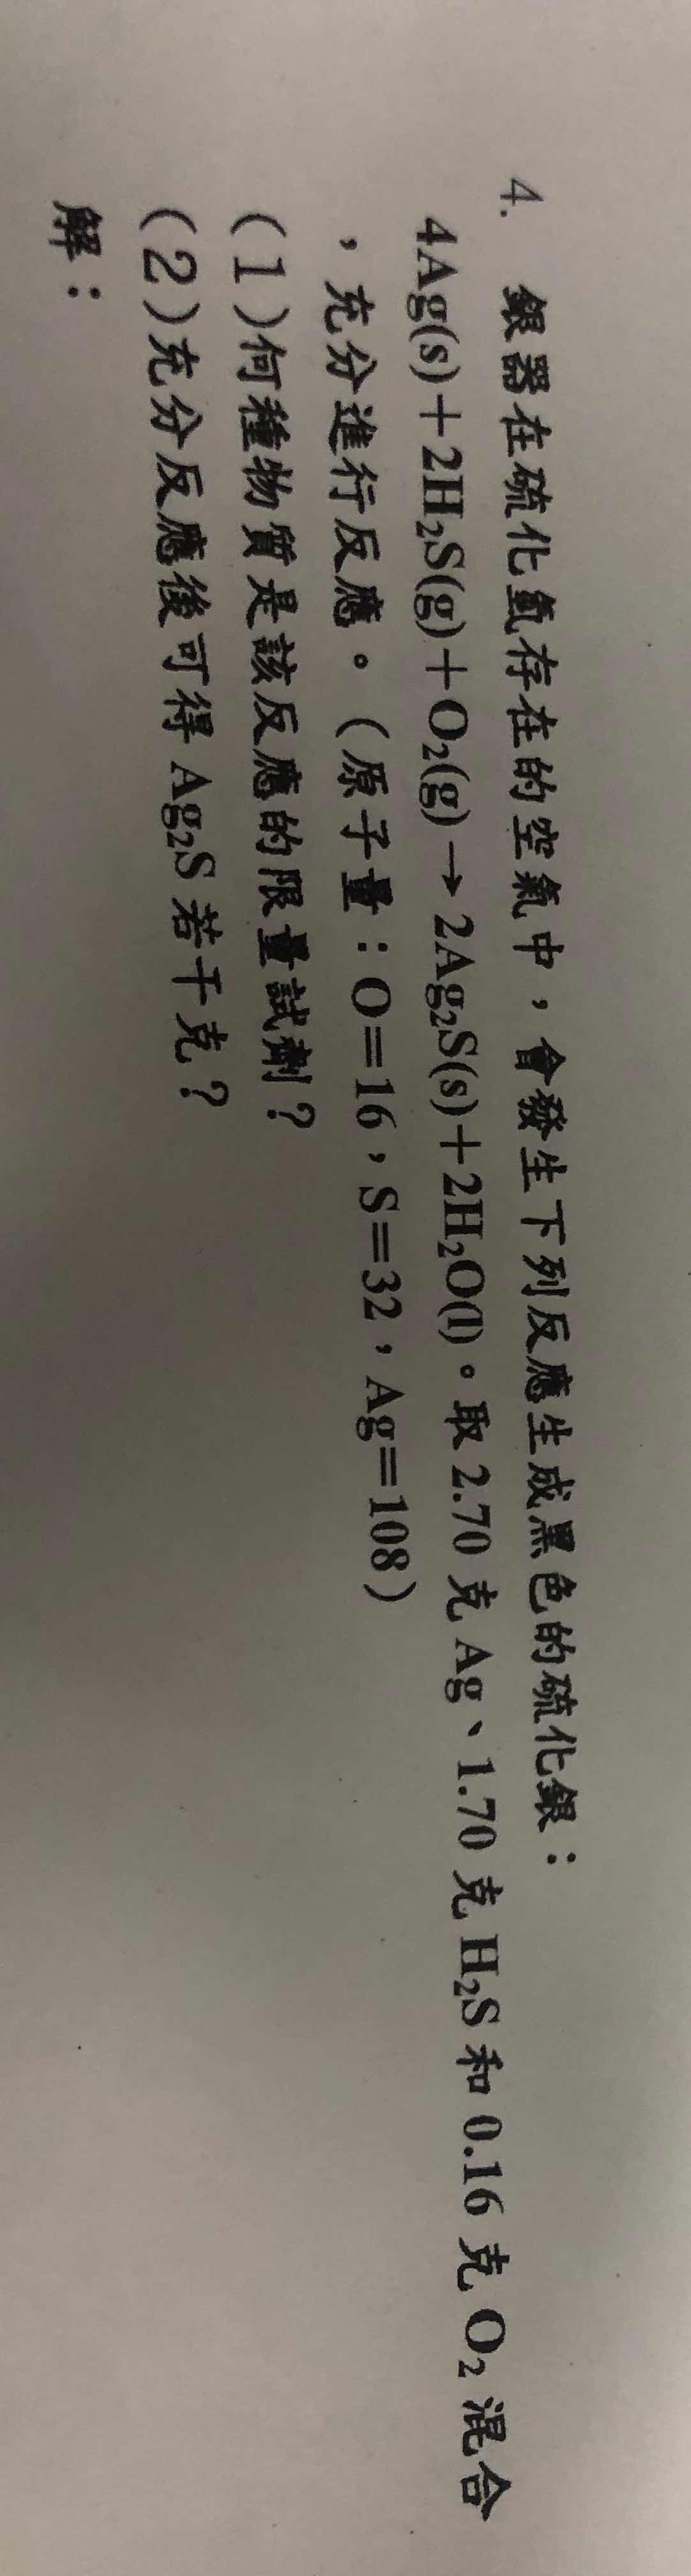 4. 銀器在硫化氫存在的空氣中，會發生下列反應生成黑色的硫化銀：
4Ag(s)＋2H₂S(g)＋O₂(g)→2Ag₂S(s)＋2H₂O(l)。取 2.70 克 Ag、1.70 克 H₂S 和 0.16 克 O₂ 混合
，充分進行反應。（原子量：O＝16，S＝32，Ag＝108）
(1)何種物質是該反應的限量試劑？
(2)充分反應後可得 Ag₂S 若干克？
解：